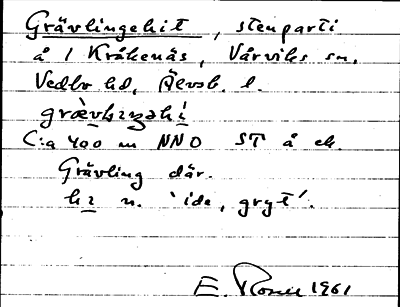 Grävlingehit, stenparti
å 1 Kråkenäs, Vårviks sn.
Vedbo hd, Älvsb. l.
C:a 400 m NNO ST å ek.
Grävling där.
n. 'ide, gryt'.
E. 1961